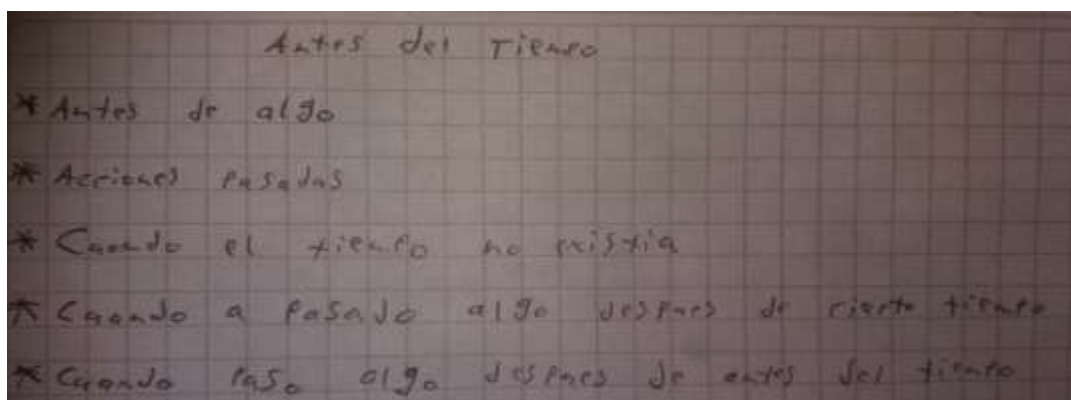 Antes del Tiempo
* Antes de algo
* Acciones Pasadas
* Cuando el tiempo no existia
* Cuando a Pasado algo despues de cierto tiempo
* Cuando Paso algo despues de antes del tiempo